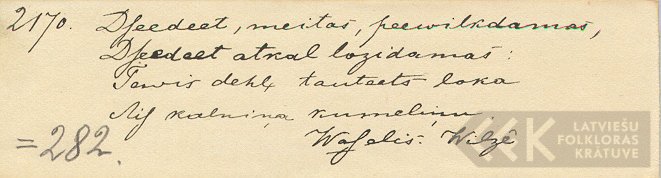 2170. Dseedeet, meitas, peewilkdamas,
Dseedeet atkal lozidamas:
Tewis dehļ tauteets loka
Ais kalniņa kumeliņu.
=282. Waselis. Wilzê
LATVIEŠU
FOLKLORAS
KRĀTUVE